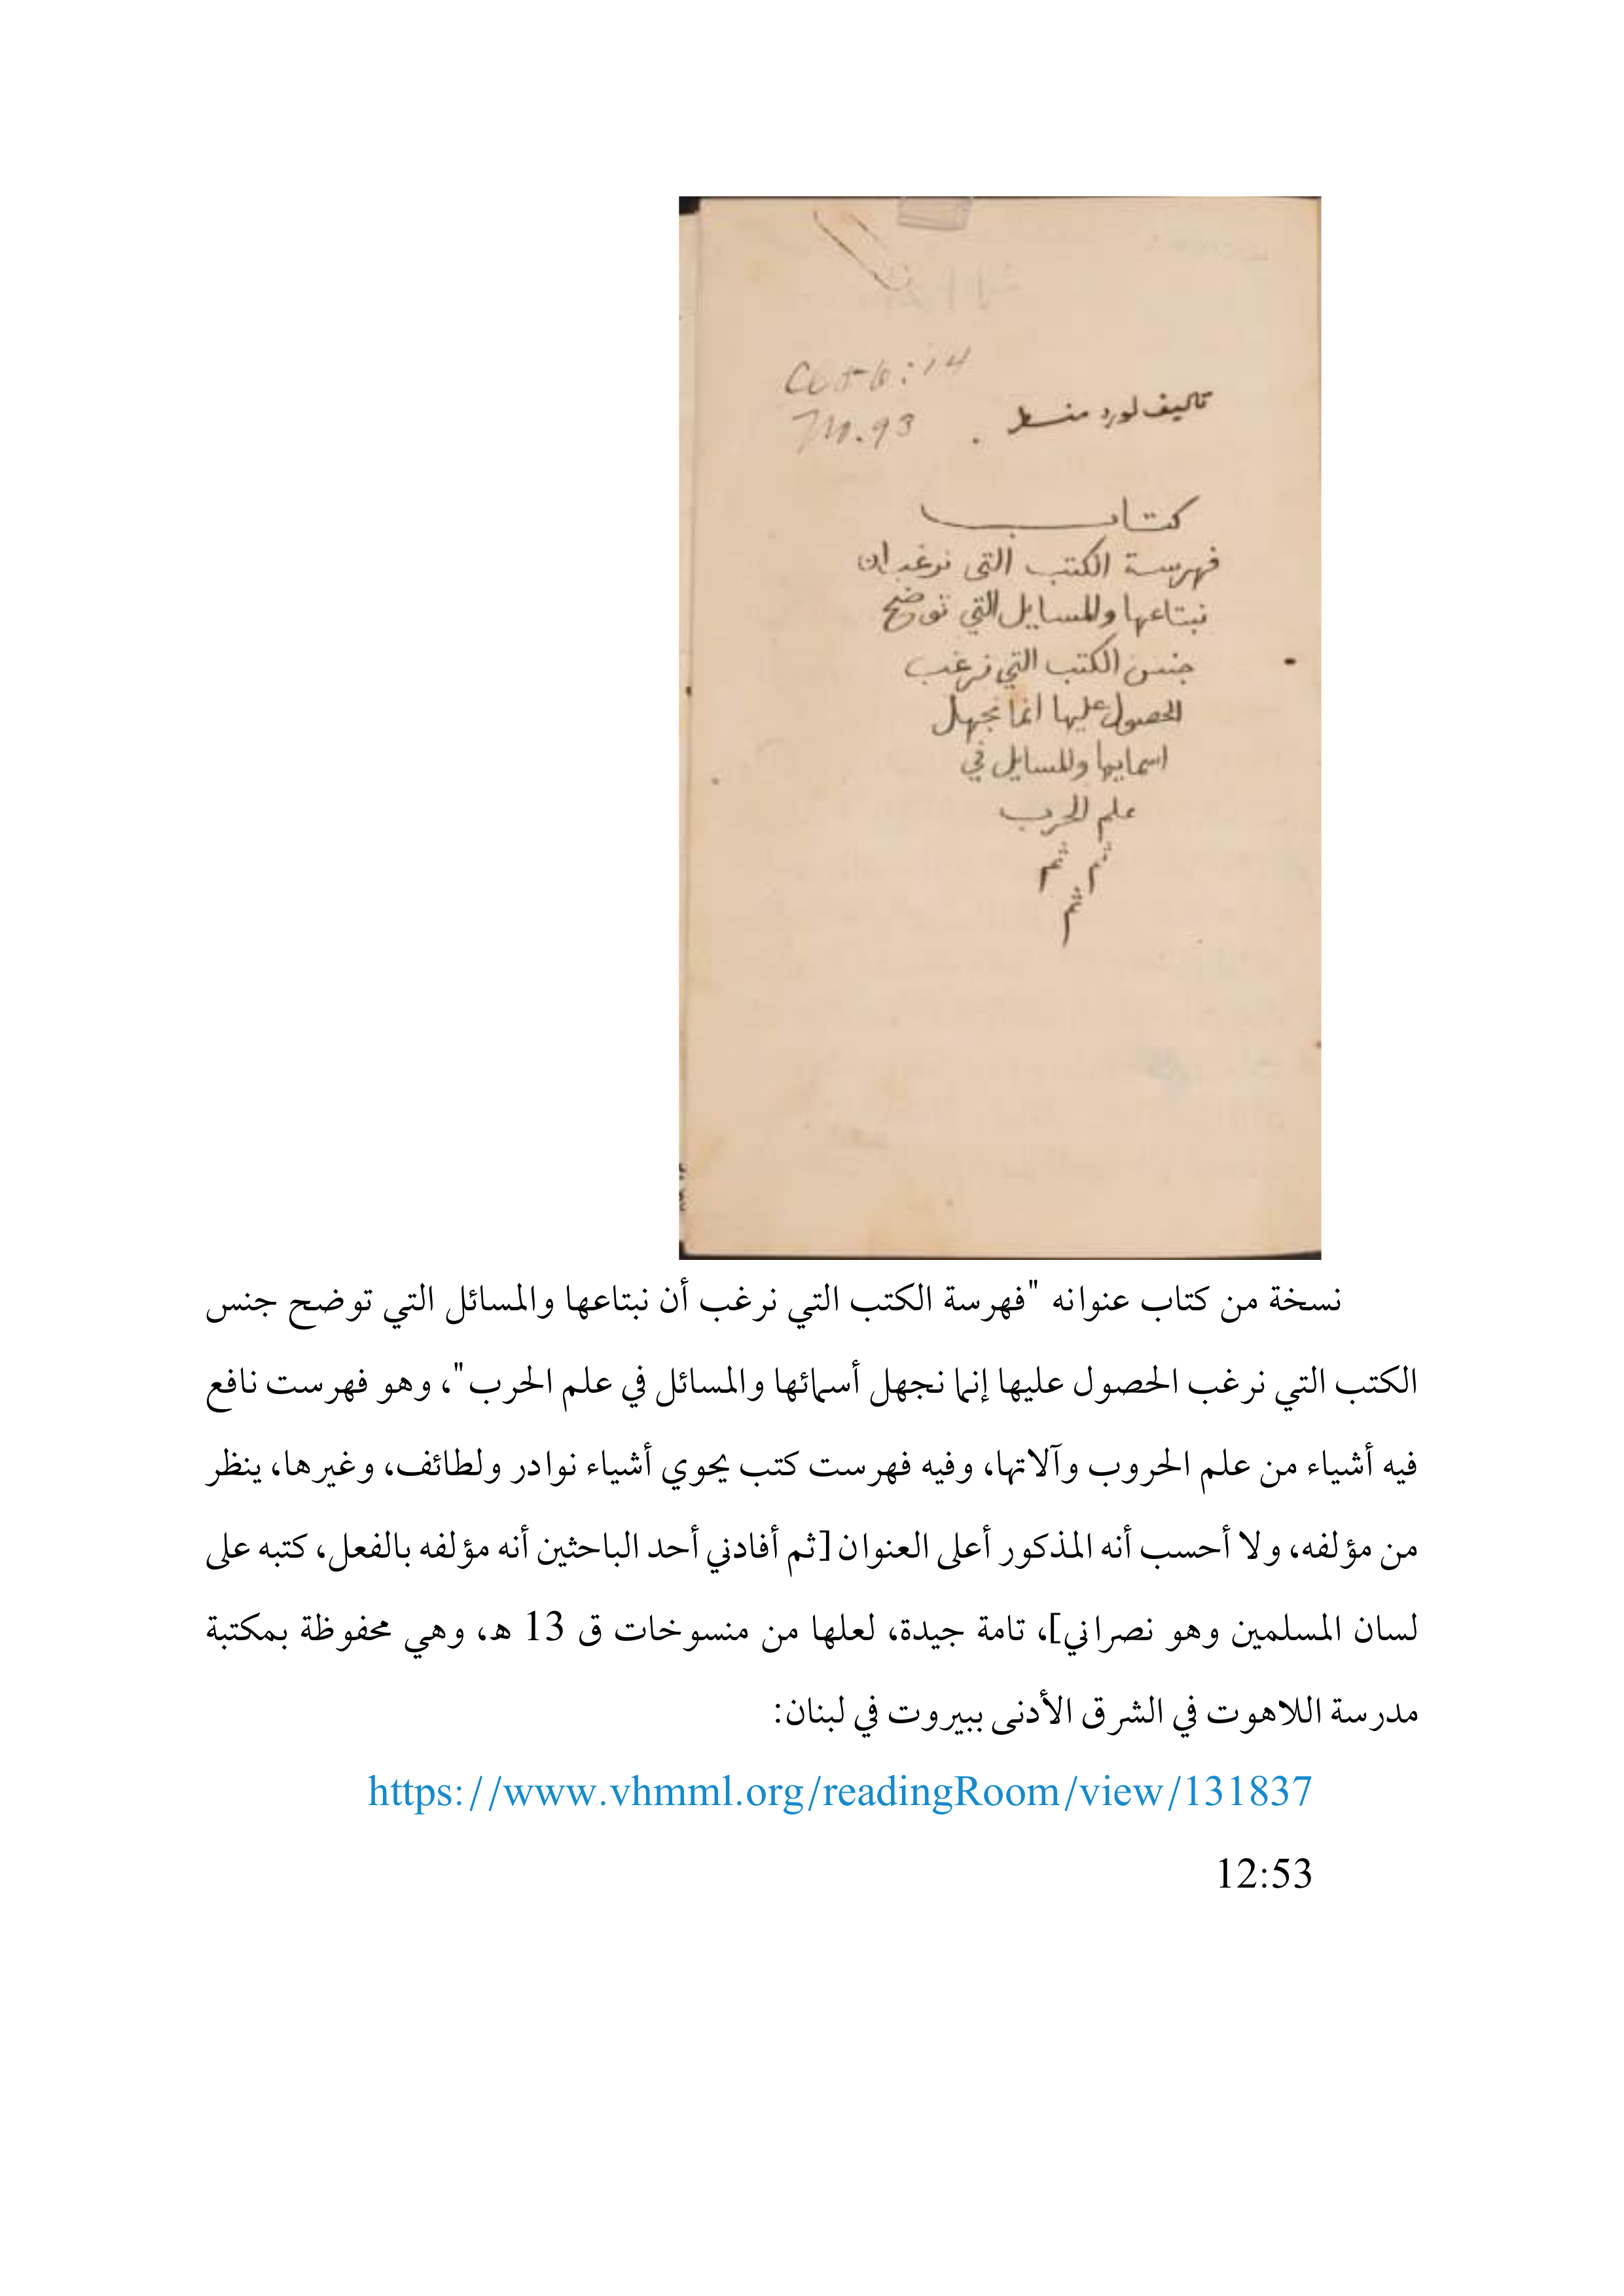 Cat 6:14
M. 93
تاليف لورد منستر
كتاب
فهرسة الكتب التى نرغب ان
نبتاعها والمسايل التي توضح
جنس الكتب التي نرغب
الحصول عليها انما نجهل
اسمايها والمسايل في
علم الحرب
ثم ثم
ثم
نسخة من كتاب عنوانه "فهرسة الكتب التي نرغب أن نبتاعها والمسائل التي توضح جنس
الكتب التي نرغب الحصول عليها إنما نجهل أسمائها والمسائل في علم الحرب"، وهو فهرست نافع
فيه أشياء من علم الحروب وآلاتها، وفيه فهرست كتب يحوي أشياء نوادر ولطائف، وغيرها، ينظر
من مؤلفه، ولا أحسب أنه المذكور أعلى العنوان [ثم أفادني أحد الباحثين أنه مؤلفه بالفعل، كتبه على
لسان المسلمين وهو نصراني]، تامة جيدة، لعلها من منسوخات ق 13 هـ، وهي محفوظة بمكتبة
مدرسة اللاهوت في الشرق الأدنى ببيروت في لبنان:
https://www.vhmml.org/readingRoom/view/131837
12:53